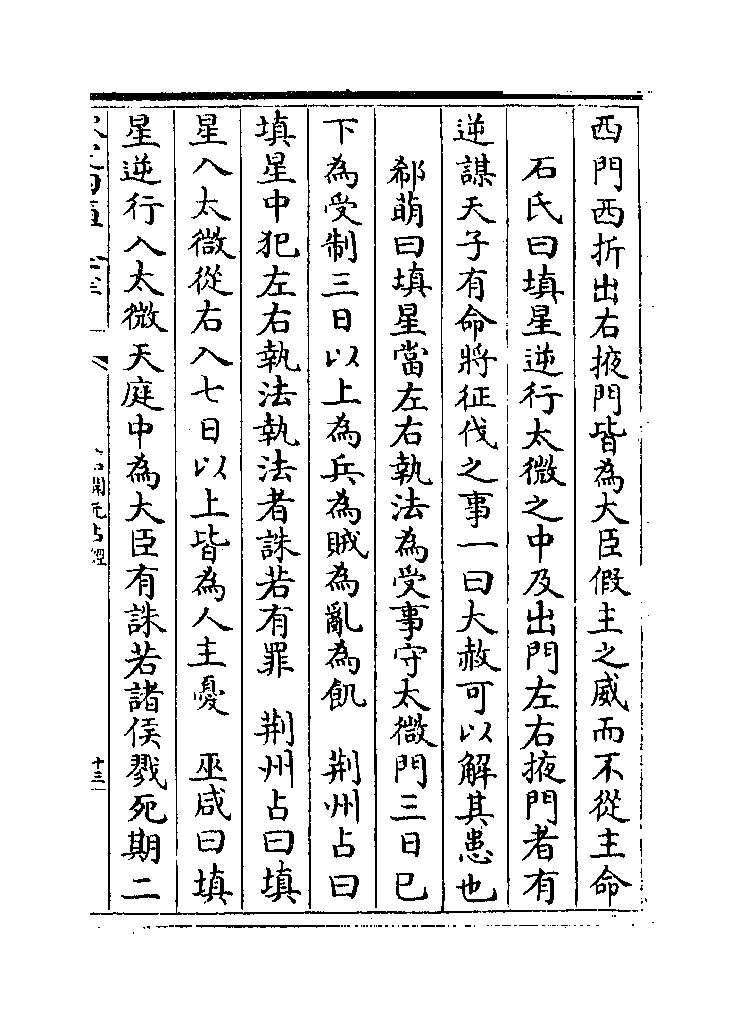 西門西折出右掖門皆為大臣假主之威而不從主命
石氏曰填星逆行太微之中及出門左右掖門者有
逆謀天子有命將征伐之事一曰大赦可以解其患也
郗萌曰填星當左右執法為受事守太微門三日已
下為受制三日以上為兵為賊為亂為飢　荆州占曰
填星中犯左右執法執法者誅若有罪　荆州占曰填
星入太微從右入七日以上皆為人主憂　巫咸曰填
星逆行入太微天庭中為大臣有誅若諸侯戮死期二
開元占經
十三